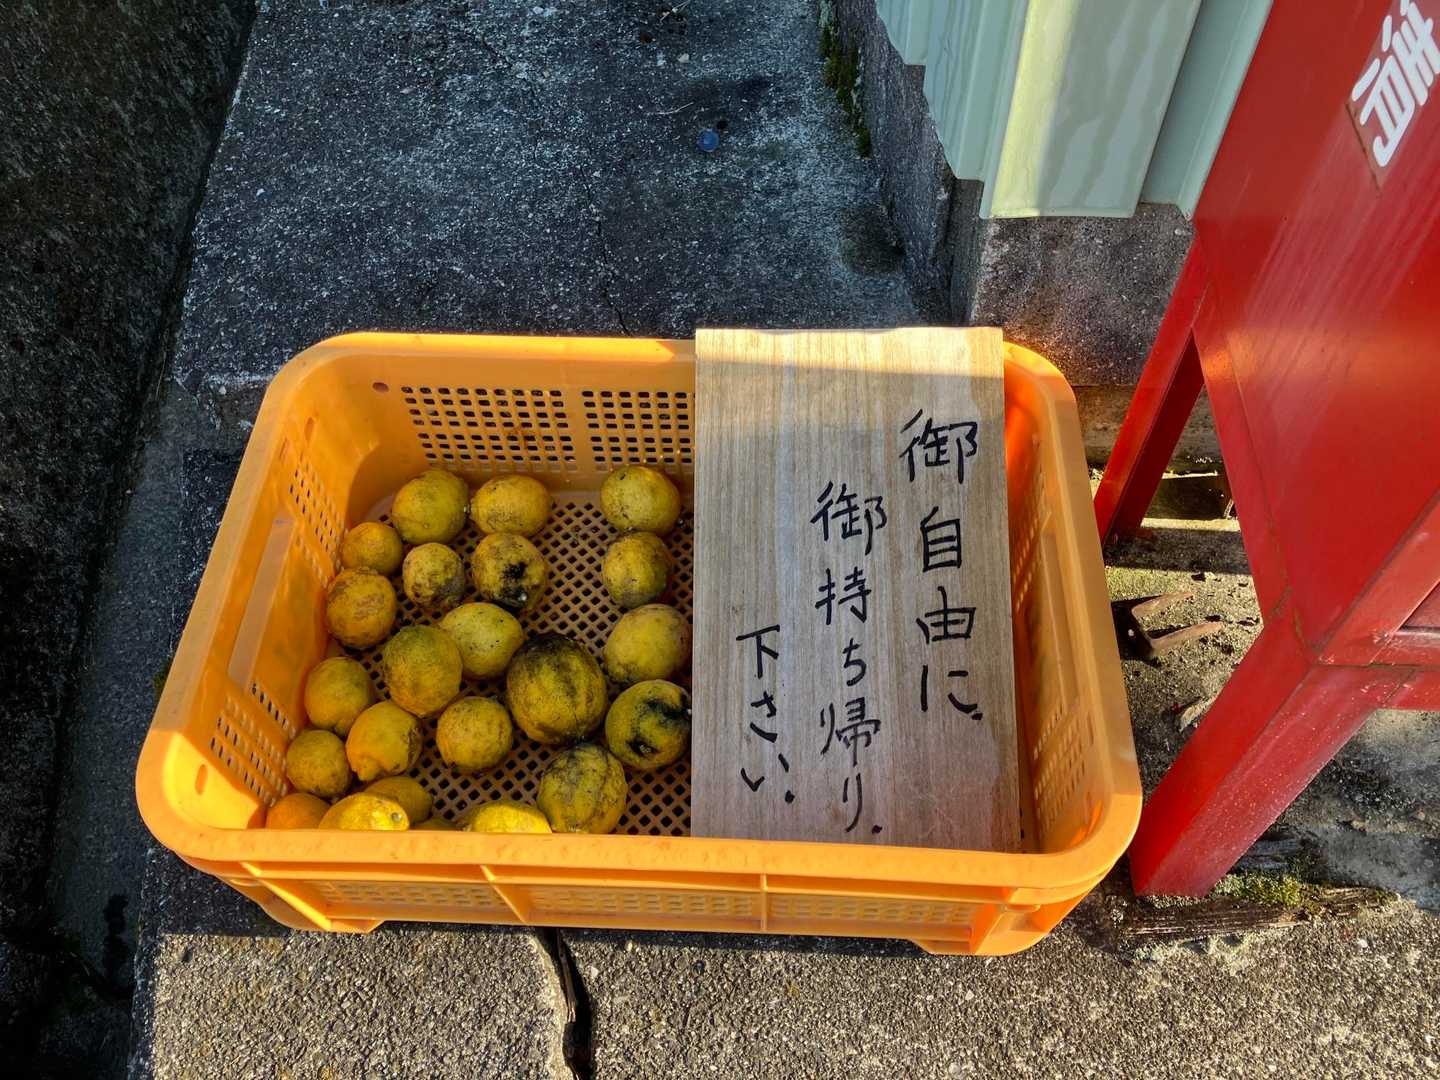 御自由に、
御持ち帰り、
下さい、